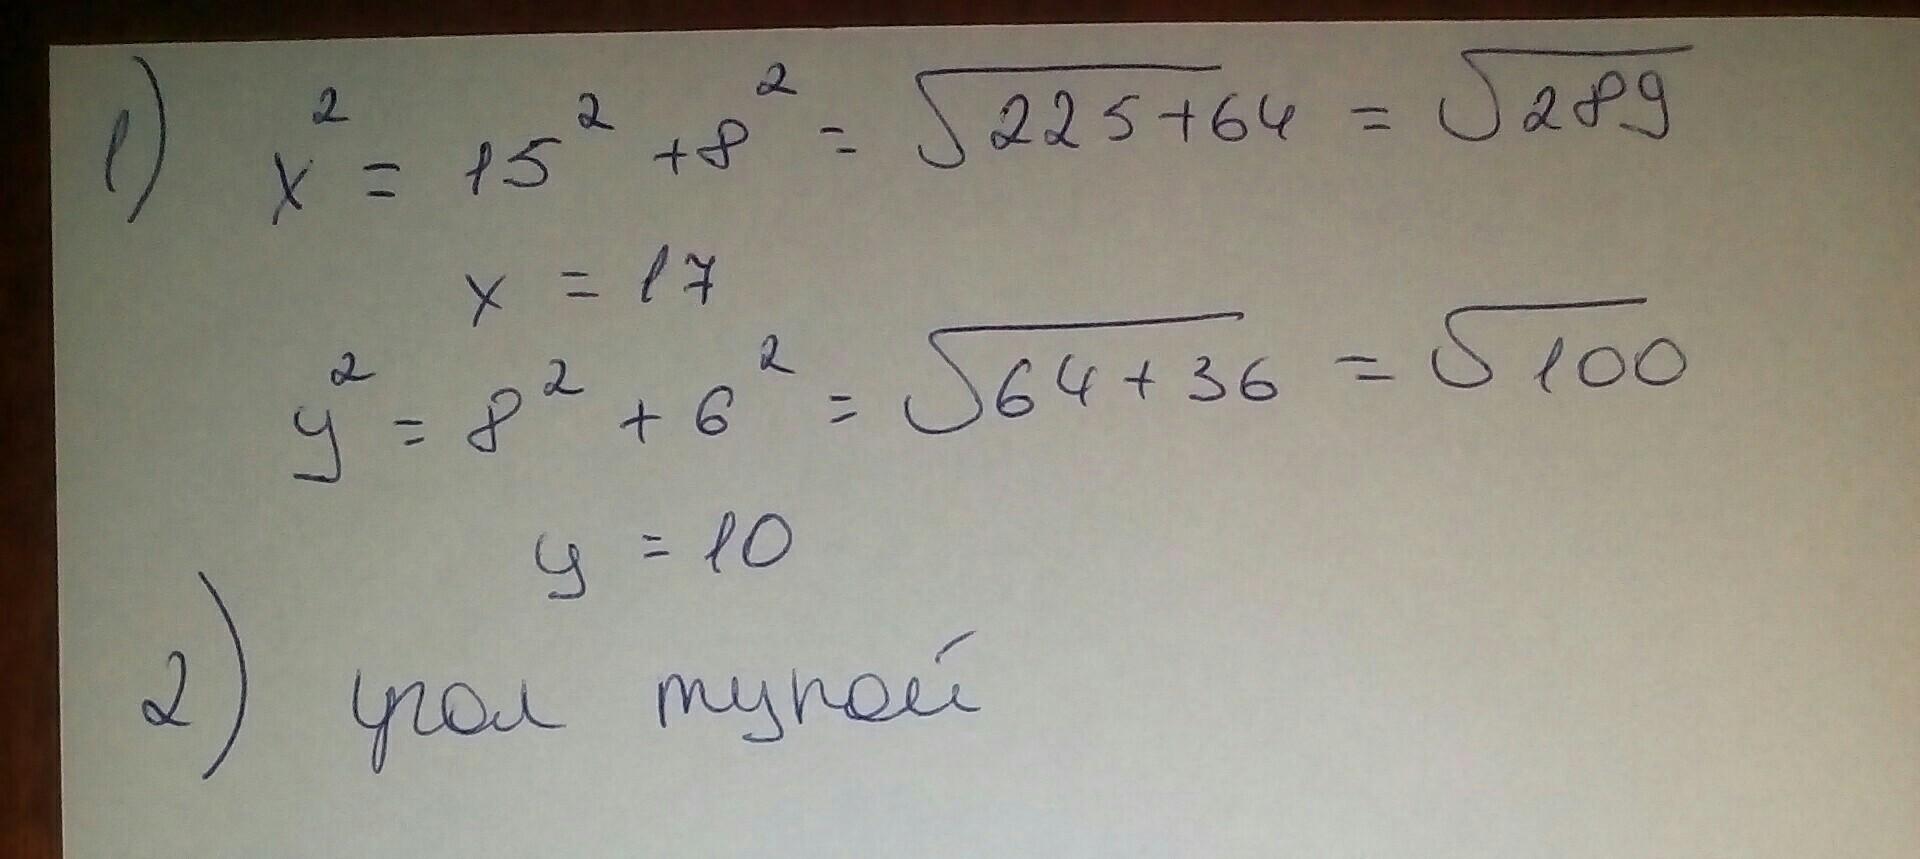 1) x² = 15² + 8² = √225+64 = √289
x = 17
y² = 8² + 6² = √64+36 = √100
y = 10
2) угол тупой